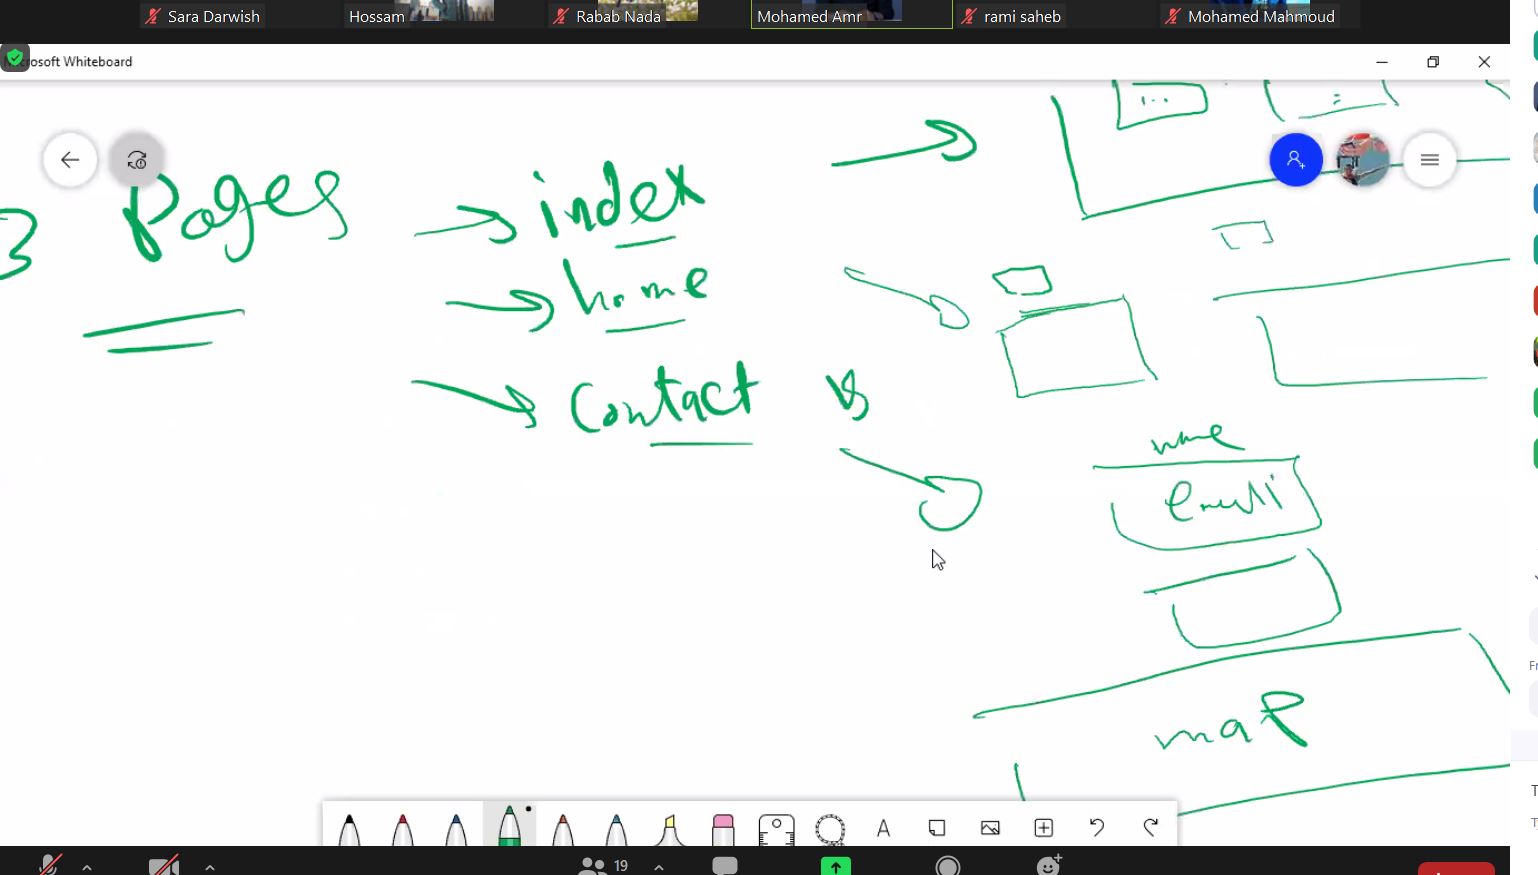 Sara Darwish Hossam Rabab Nada Mohamed Amr rami saheb Mohamed Mahmoud
osoft Whiteboard
3 Pages → index
→ home
→ Contact us
name
email
map
A
19